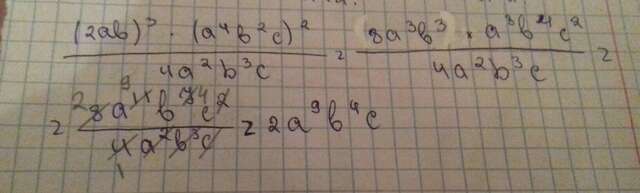 (2ab)³ · (a⁴b²c)² / 4a²b³c = 8a³b³ · a⁸b⁴c² / 4a²b³c =
= 8a¹¹b⁷c² / 4a²b³c = 2a⁹b⁴c